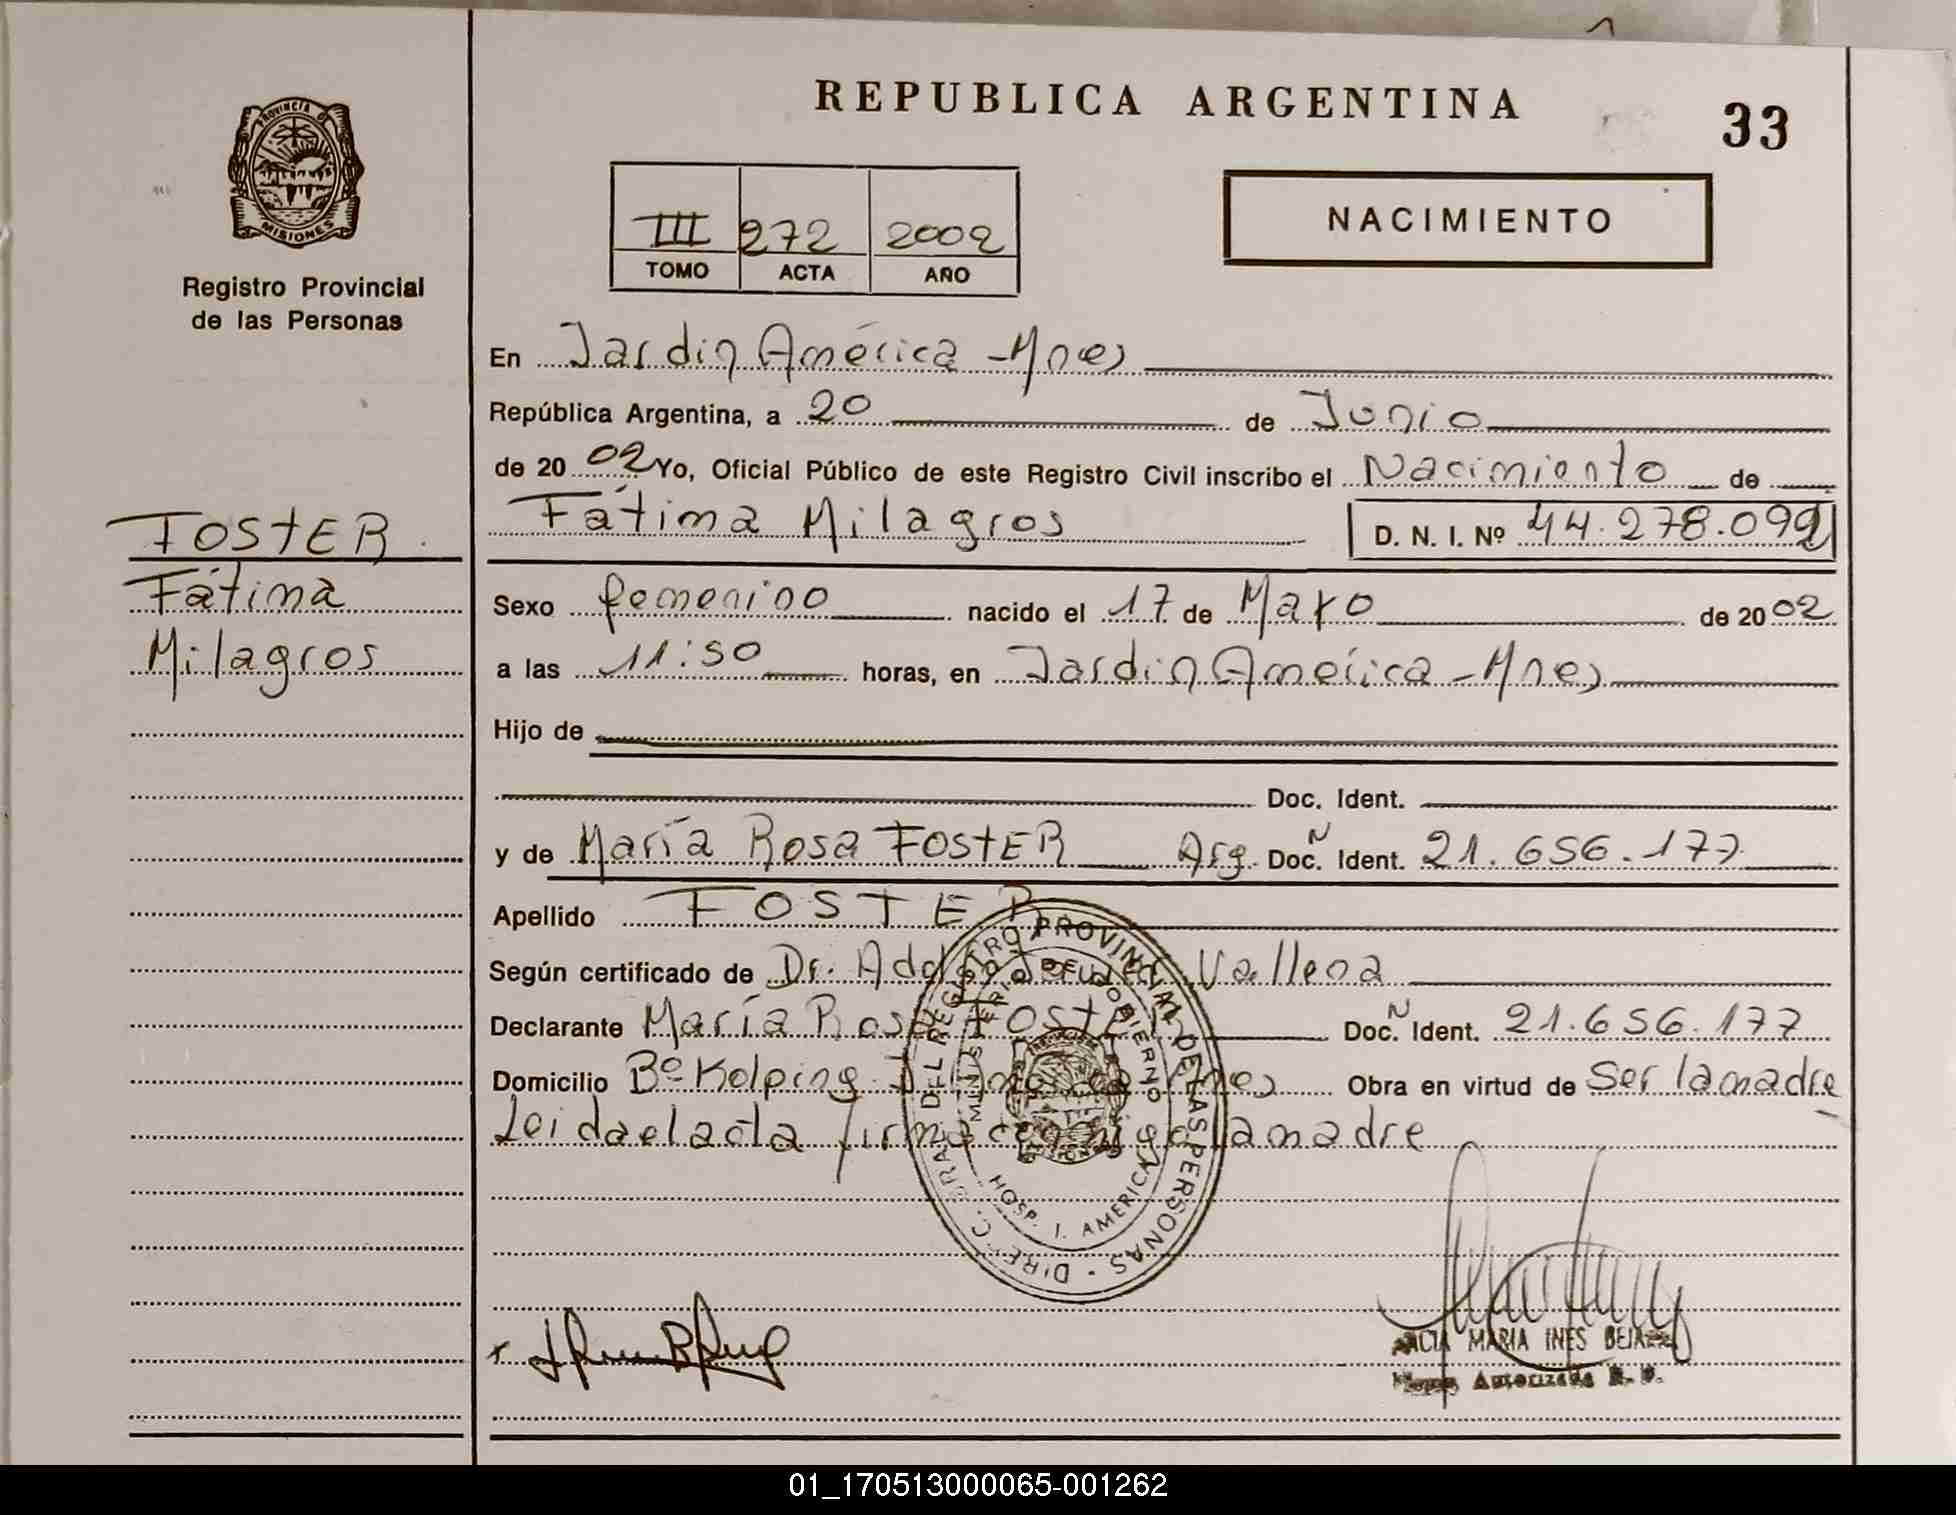 REPUBLICA ARGENTINA
33
PROVINCIA DE
MISIONES
Registro Provincial
de las Personas
III 272 2002
TOMO ACTA AÑO
NACIMIENTO
En Jardin América - Mnes
República Argentina, a 20 de Junio
de 20 02 Yo, Oficial Público de este Registro Civil inscribo el Nacimiento de
Fátima Milagros D. N. I. Nº 44.278.092
FOSTER
Fátima
Milagros
Sexo femenino nacido el 17 de Mayo de 20 02
a las 11:50 horas, en Jardin América - Mnes
Hijo de
Doc. Ident.
y de María Rosa FOSTER Arg. Doc. N Ident. 21.656.177
Apellido FOSTER
Según certificado de Dr. Vallena
Declarante María Rosa Foster Doc. N Ident. 21.656.177
Domicilio Bº Kolping Obra en virtud de Ser la madre
Leida el acta firma conmigo la madre
DIREC. GRAL DEL REGISTRO PROVINCIAL DE LAS PERSONAS
MINISTERIO DE GOBIERNO
HOSP. J. AMERICA
MARIA INES
Autorizada R. P.
01_170513000065-001262